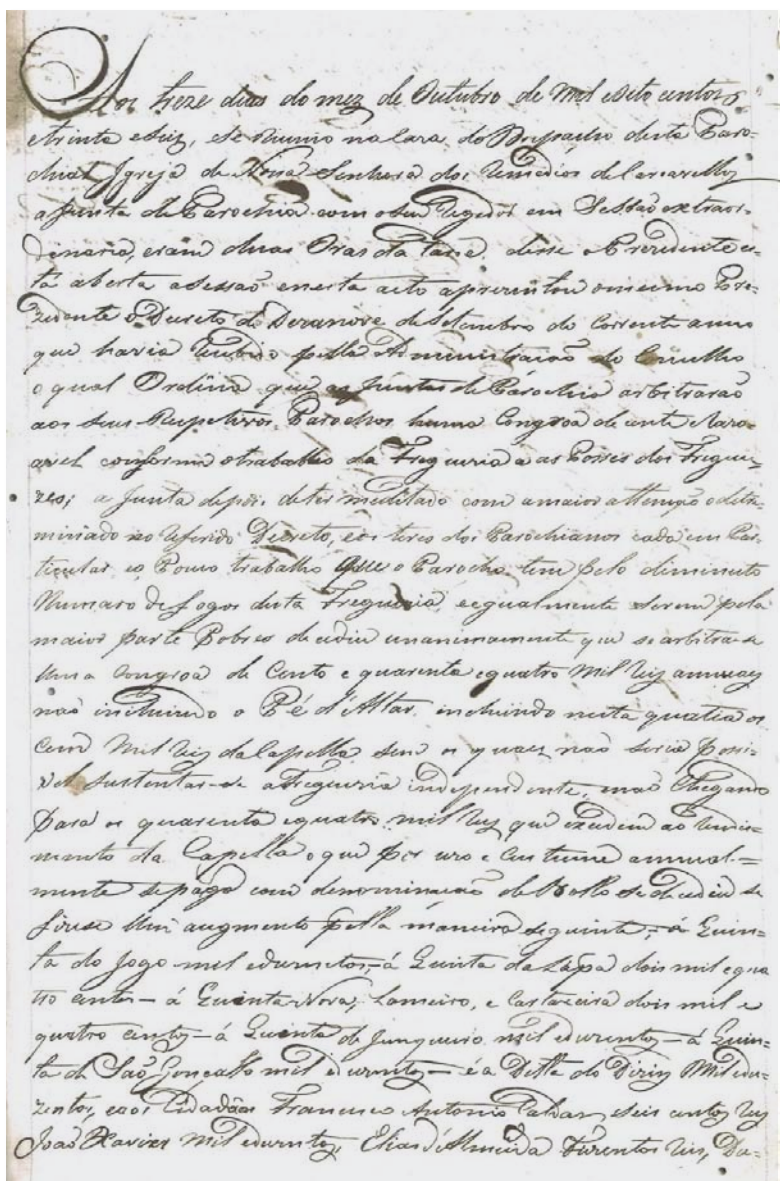 Aos treze dias do mez de Outubro de Mil e oito centos
e trinta e seiz, se reunio na Caza do Despacho desta Paro-
chial Igreja de Nossa Senhora dos Remedios de Carcavellos
a Junta de Parochia com o seu Regedor em Sessaõ extraor-
denaria, eraõ duas Oras da tarde, disse o Prezidente es-
tá aberta a sessaõ e nesta acto aprezentou o mesmo Pre-
zidente o Decreto de Dezanove de Setembro do Corrente anno
que havia recebido pella Administracaõ do Concelho
o qual Ordena que as Juntas de Parochia arbitraraõ
aos seus Respetivos Parochos huma Congroa de cente
conforme o trabalho da Freguezia e as Posses dos Fregue-
zes; a Junta depois de ter meditado com a maior attençaõ o detre-
minado no referido Decreto, e os dos Parochianos cada em Par-
ticular e o Pouco trabalho que o Parocho tem pelo diminuto
Numaro de fogos desta Freguezia, e egualmente serem pela
maior parte Pobres decediu unanimamente que se arbitrase
Uma Congroa de Cento e quarenta e quatro Mil reiz annuaes
naõ incluindo o Pé d'Altar, incluindo nesta quatia os
Cem Mil reiz da Capella sem os quaes naõ seria possi-
vel sustentar-se a Freguezia independente, e naõ Chegando
para os quarenta e quatro mil reis que excedem ao rendi-
mento da Capella o que por uzo e Custume annual=
mente se paga com denominacaõ de Bollo se decediu se
fizese Um augmento pella maneira seguinte,= á Quin-
ta do Jogo mil e duzentos,= á Quinta da Lapa dois mil e qua
tro centos = á Quinta Nova, Lameiro, e Cartaxeira dois mil e
quatro centos = á Quenta do Junqueiro mil e duzentos = á Quin-
ta de Saõ Gonçallo mil e duzentos = é a Della do Mil e du-
zentos, e aos Cidadãos Francisco Antonio seis centos reis
Joaõ Xavier Mil e duzentos, Elias d'Almeida Duzentos reis, Du-